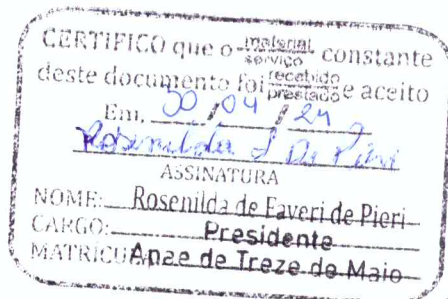 CERTIFICO que o material serviço constante
deste documento foi recebido prestado e aceito
Em, 30 / 04 / 24
Rosenilda D De Pieri
ASSINATURA
NOME: Rosenilda de Faveri de Pieri
CARGO: Presidente
MATRÍCULA Apae de Treze de Maio